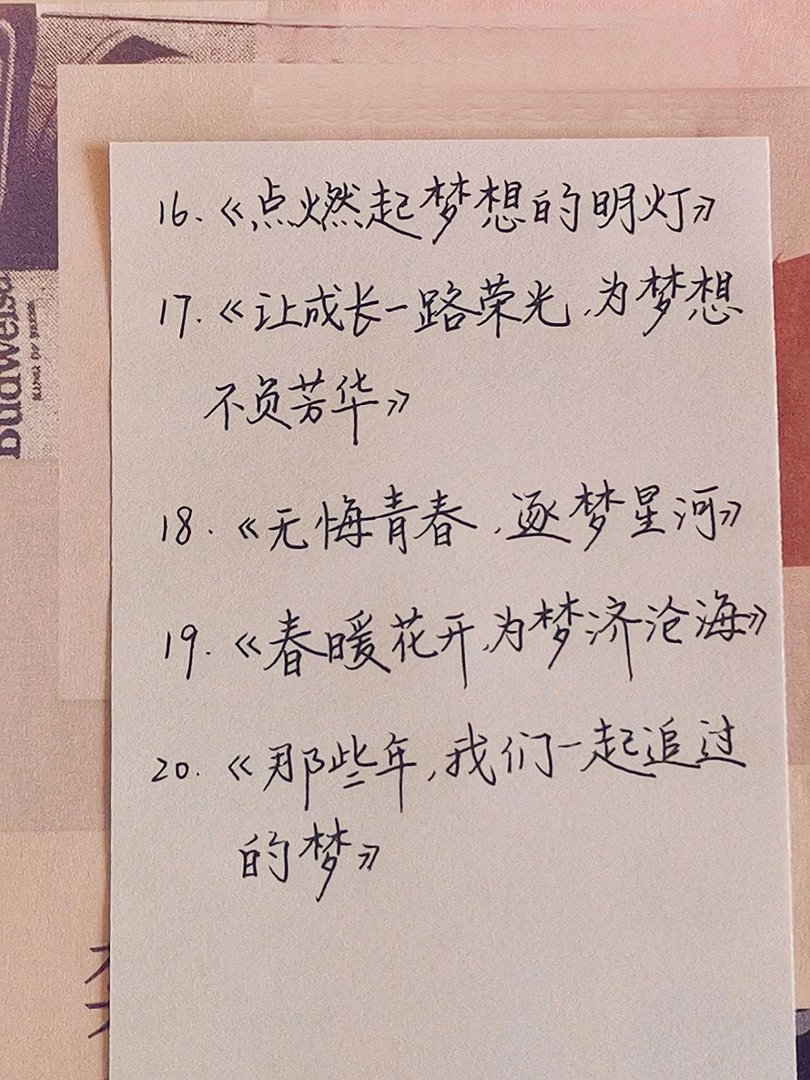 16.《点燃起梦想的明灯》
17.《让成长一路荣光,为梦想
不负芳华》
18.《无悔青春,逐梦星河》
19.《春暖花开,为梦济沧海》
20.《那些年,我们一起追过
的梦》
Budweiser